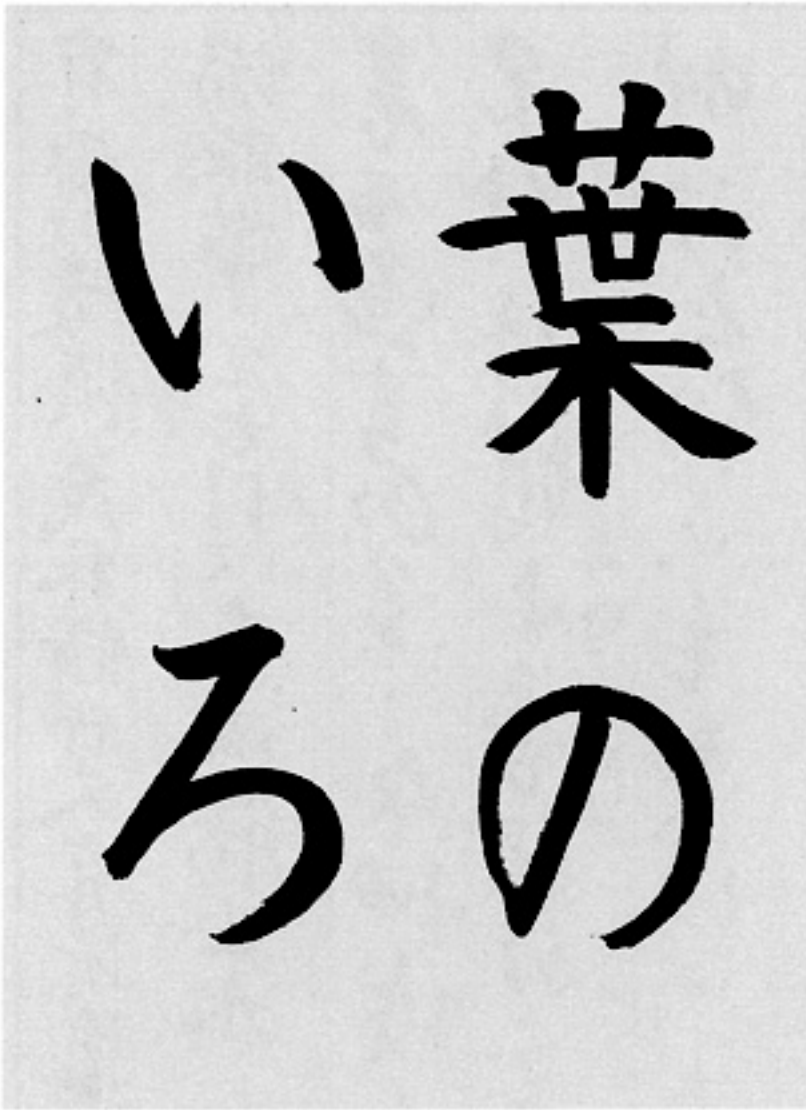 葉の
いろ